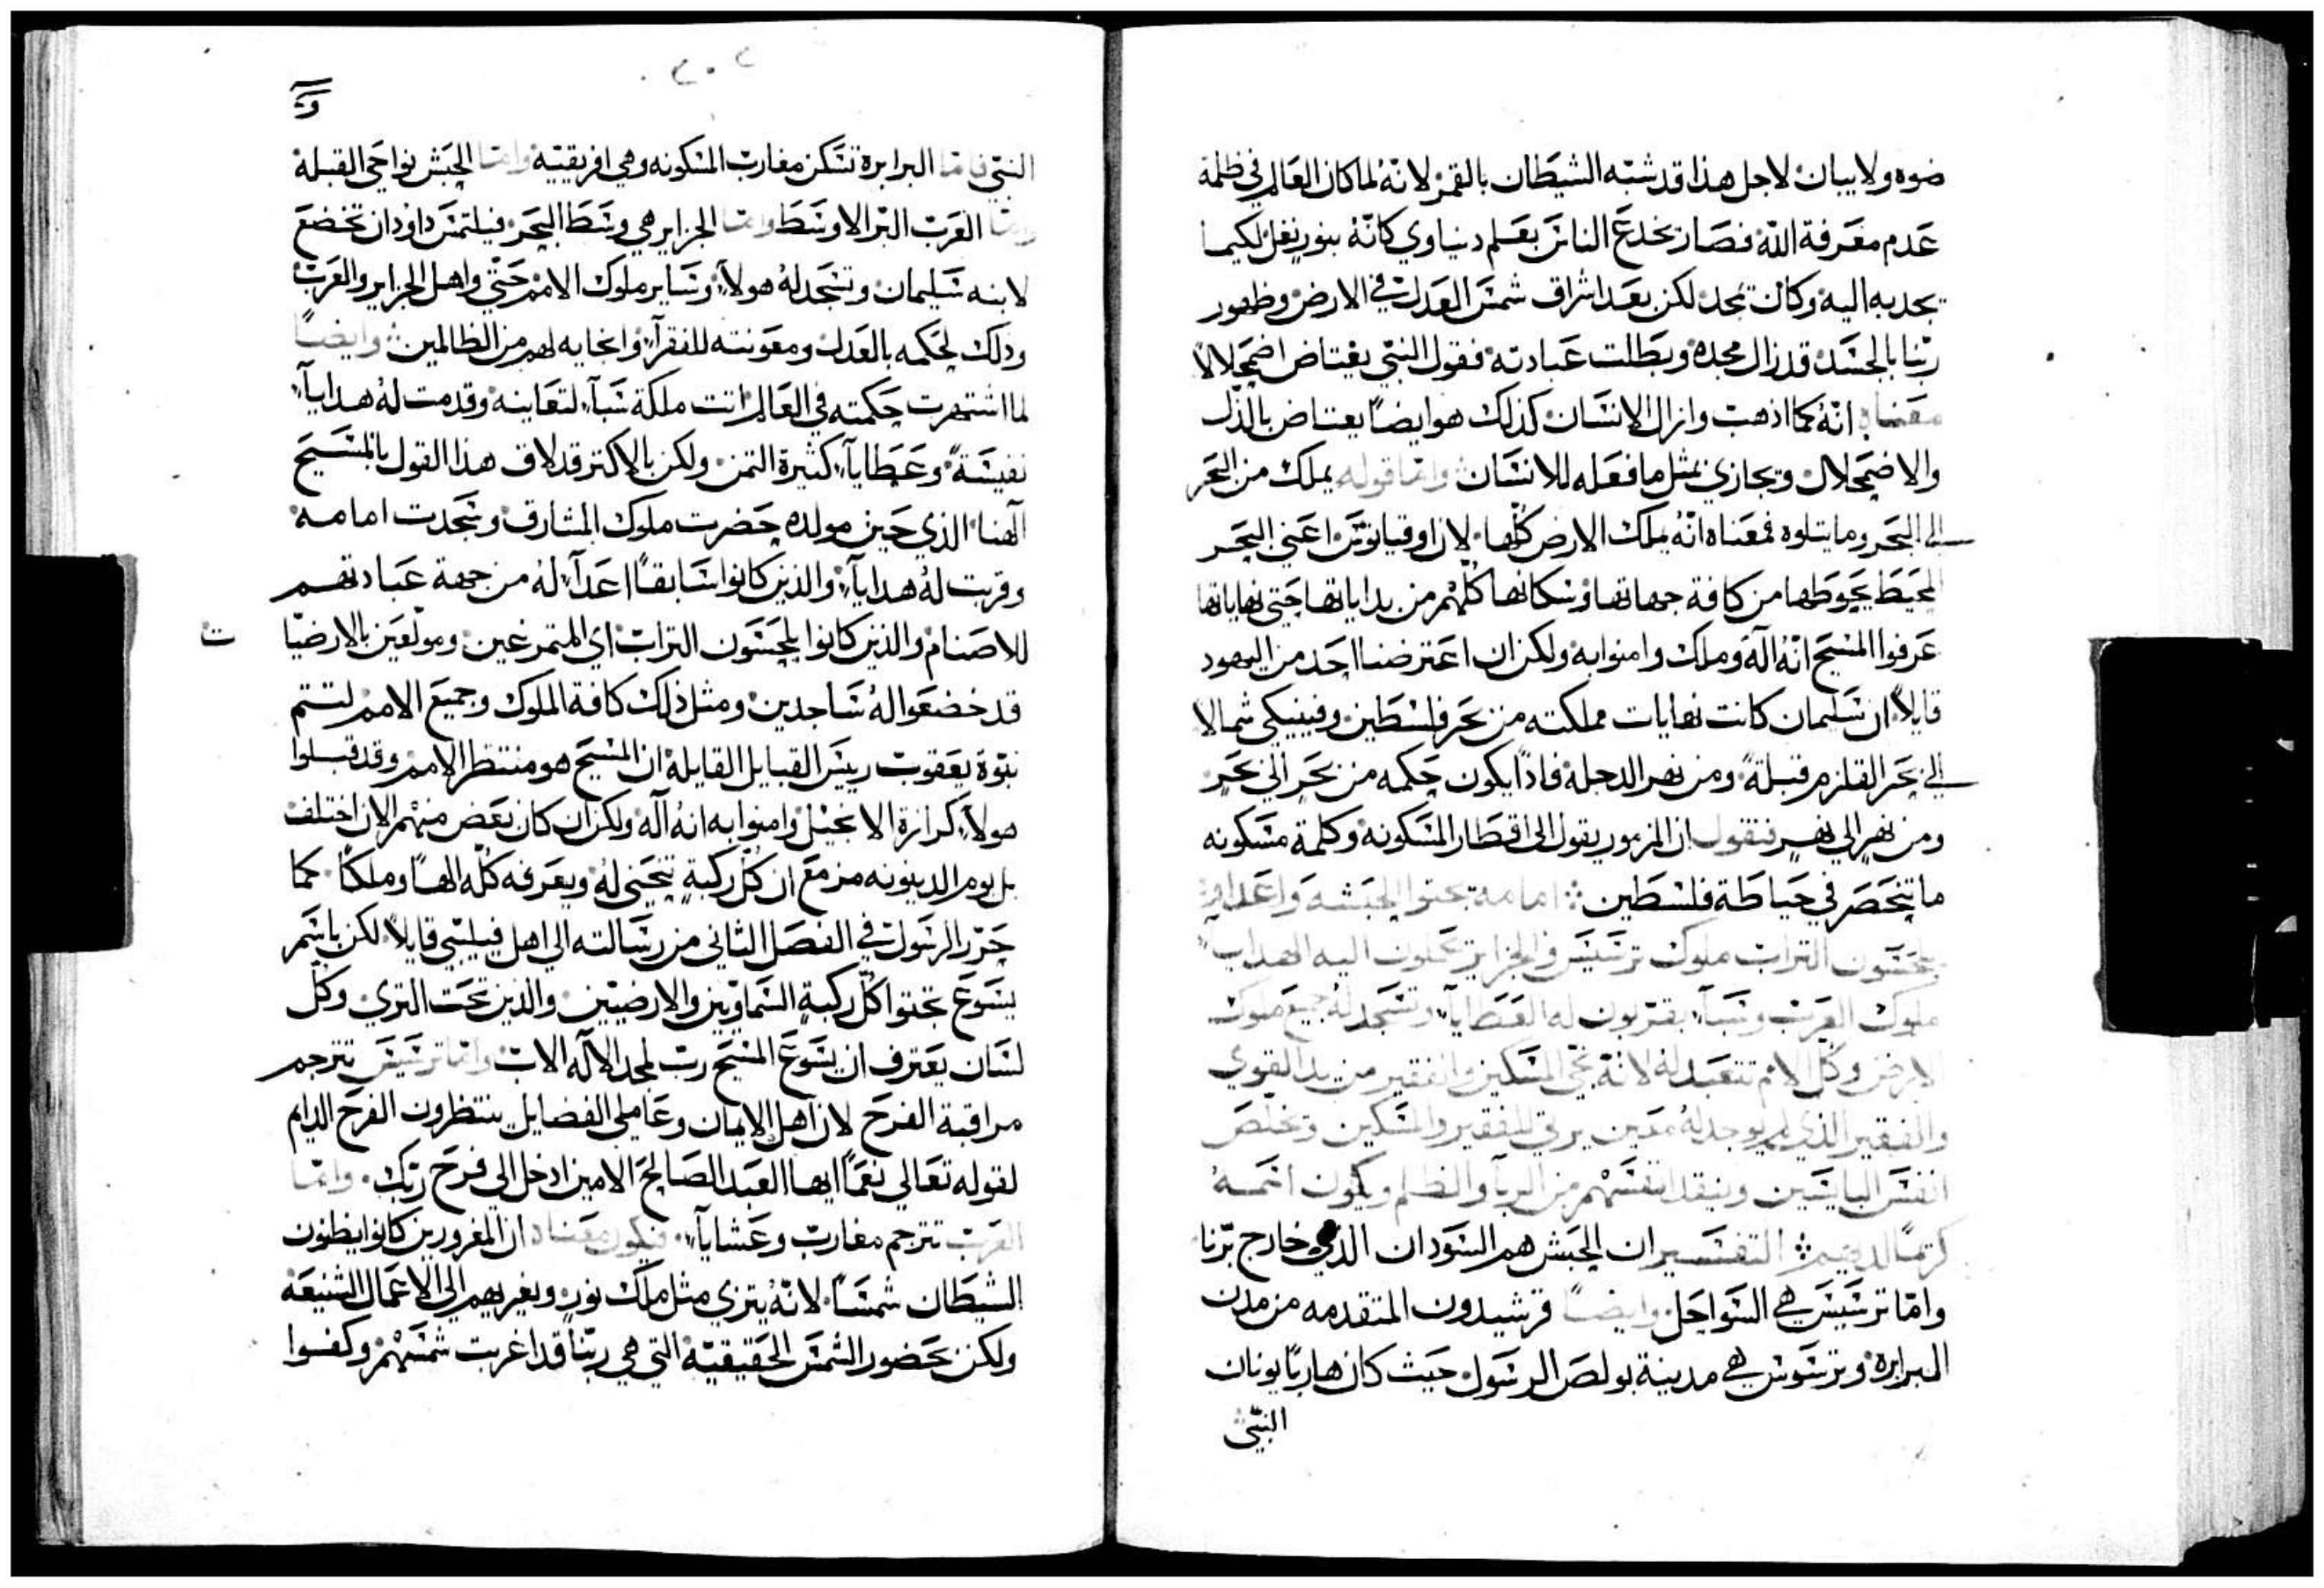 ضوه ولا يبان لاجل هذا قد شبه الشيطان بالقمر لانهُ لما كان العالم في ظلمة
عدم معرفة الله فصار يخدع الناس بعلم دنياوي كانّهُ بنور نغل لكيما
يجدبه اليه وكان تمجد لكن بعد اشراق شمس العدل في الارض وظهور
ربّنا بالجسد قد زال مجده وبطلت عبادته فقول النبي يعتاض اضمحلالاً
معناه انّهُ كما اذهب وازال الانسان كذلك هو ايضاً يعتاض بالذل
والاضمحلال ويجازي بمثل ما فعله للانسان وامّا قوله يملك من البحر
الى البحر وما يتلوه فمعناه انّهُ يملك الارض كلّها لان اوقيانوس اعني البحر
المحيط يحوطها من كافة جهاتها وسكانها كلّهم من بداياتها حتى نهاياتها
عرفوا المسيح انّهُ اله وملك وامنوا به ولكن ان اعترضنا احد من اليهود
قايلاً ان سليمان كانت نهايات مملكته من بحر فلسطين وفينيكي شمالا
الى بحر القلزم قبلةً ومن نهر الدجلة فاذاً يكون حكمه من بحرٍ الى بحرٍ
ومن نهرٍ الى نهرٍ فنقول ان المزمور يقول الى اقطار المسكونه وكلمة مسكونه
ما تنحصر في حياطة فلسطين ⁘ امامه تجثوا الحبشه واعداوه
يلحسون التراب ملوك ترسيس والجزاير يحملون اليه الهدايا
ملوك العرب وسبا يقرّبون له العطايا وتسجد له جميع ملوك
الارض وكل الامم تتعبد له لانّهُ نجّى المسكين والفقير من يد القوي
والفقير الذي لم يوجد لهُ معين يرثي للفقير والمسكين ويخلّص
انفس البايسين وينقد انفسهم من الربا والظلم ويكون اسمهُ
كريماً لديهم ⁘ التفسير ان الحبش هم السودان الذي خارج برّنا
وامّا ترسيس هي السواحل وايضاً قرشيدون المتقدمه من مدن
البرابرة وترسوس هي مدينة بولص الرسول حيث كان هارباً يونان
النبيّ
النبيّ فامّا البرابرة تسكن مغارب المسكونه وهي افريقيّه وامّا الحبش نواحي القبلة
وامّا العرب البر الاوسط وامّا الجزاير هي وسط البحر فيلتمس داودان تخضع
لابنه سليمان وتسجد لهُ هولاء وساير ملوك الامم حتّى واهل الجزاير والعرب
وذلك لحكمه بالعدل ومعونته للفقرآء وانجايه لهم من الظالمين وايضاً
لما اشتهرت حكمته في العالم اتت ملكة سبآء لتعاينه وقدمت لهُ هدايآء
نفيسةً وعطايآء كثيرة الثمن ولكن بالاكتر قد لاق هذا القول بالمسيح
الهنا الذي حين مولده حضرت ملوك المشارق وسجدت امامه
وقربت لهُ هدايآء والذين كانوا سابقاً اعدآء لهُ من جهة عبادتهم
للاصنام والذين كانوا يلحسون التراب اي المتمرغين ومولعين بالارضيّا
ت
قد خضعوا لهُ ساجدين ومثل ذلك كافة الملوك وجميع الامم لتتم
نبوة يعقوب رييس القبايل القايلة ان المسيح هو منتظر الامم وقد قبلوا
هولاء كرازة الانجيل وامنوا به انهُ اله ولكن ان كان بعض منهم الان اختلف
بل يوم الدينونه مزمع ان كل ركبةٍ تنحني لهُ ويعرفه كلّه الهاً وملكاً كما
حرّر الرسول في الفصل الثاني من رسالته الى اهل فيلبّي قايلاً لكن باسم
يسوع تجثوا كلّ ركبة السماويّين والارضيّين والذين تحت الثري وكل
لسان يعترف ان يسوع المسيح رب لمجد الاله الاب وامّا ترسيس تترجم
مراقبة الفرح لان اهل الايمان وعاملي الفضايل ينتظرون الفرح الدايم
لقوله تعالى نعمّا ايها العبد الصالح الامين ادخل الى فرح ربّك وامّا
العرب تترجم مغارب وعشايآء فيكون معناه ان المغرورين كانوا يظنون
الشيطان شمساً لانّهُ يتزي مثل ملك نور ويغريهم الى الاعمال الشنيعة
ولكن بحضور الشمس الحقيقيّة التي هي ربّنا قد اغربت شمسهم وكفوا